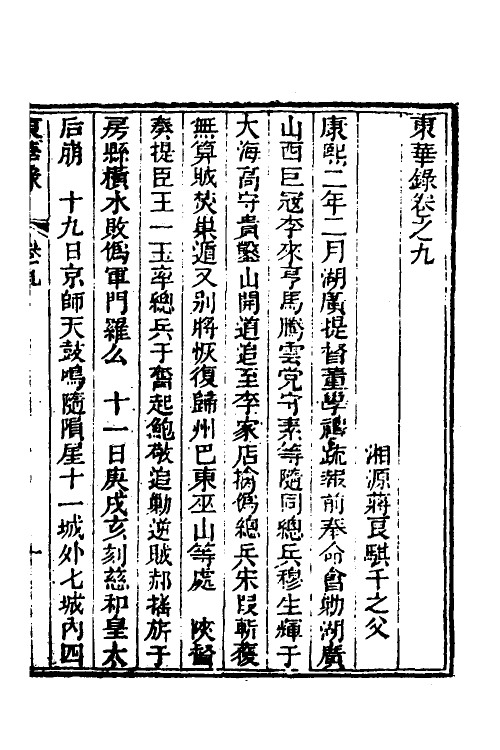 東華錄卷之九
湘源蔣良騏千之父
康熙二年二月湖廣提督董學禮疏報前奉命會勦湖廣
山西巨寇李來亨馬騰雲党守素等隨同總兵穆生輝于
大海高守貴鑿山開道追至李家店擒偽總兵宋段斬獲
無算賊焚巢遁又別將恢復歸州巴東巫山等處 陝督
奏提臣王一正率總兵于奮起鮑敬追勦逆賊郝搖旂于
房縣橫水敗偽軍門羅么 十一日庚戌亥刻慈和皇太
后崩 十九日京師天鼓鳴隨隕星十一城外七城內四
東華錄 卷九 一